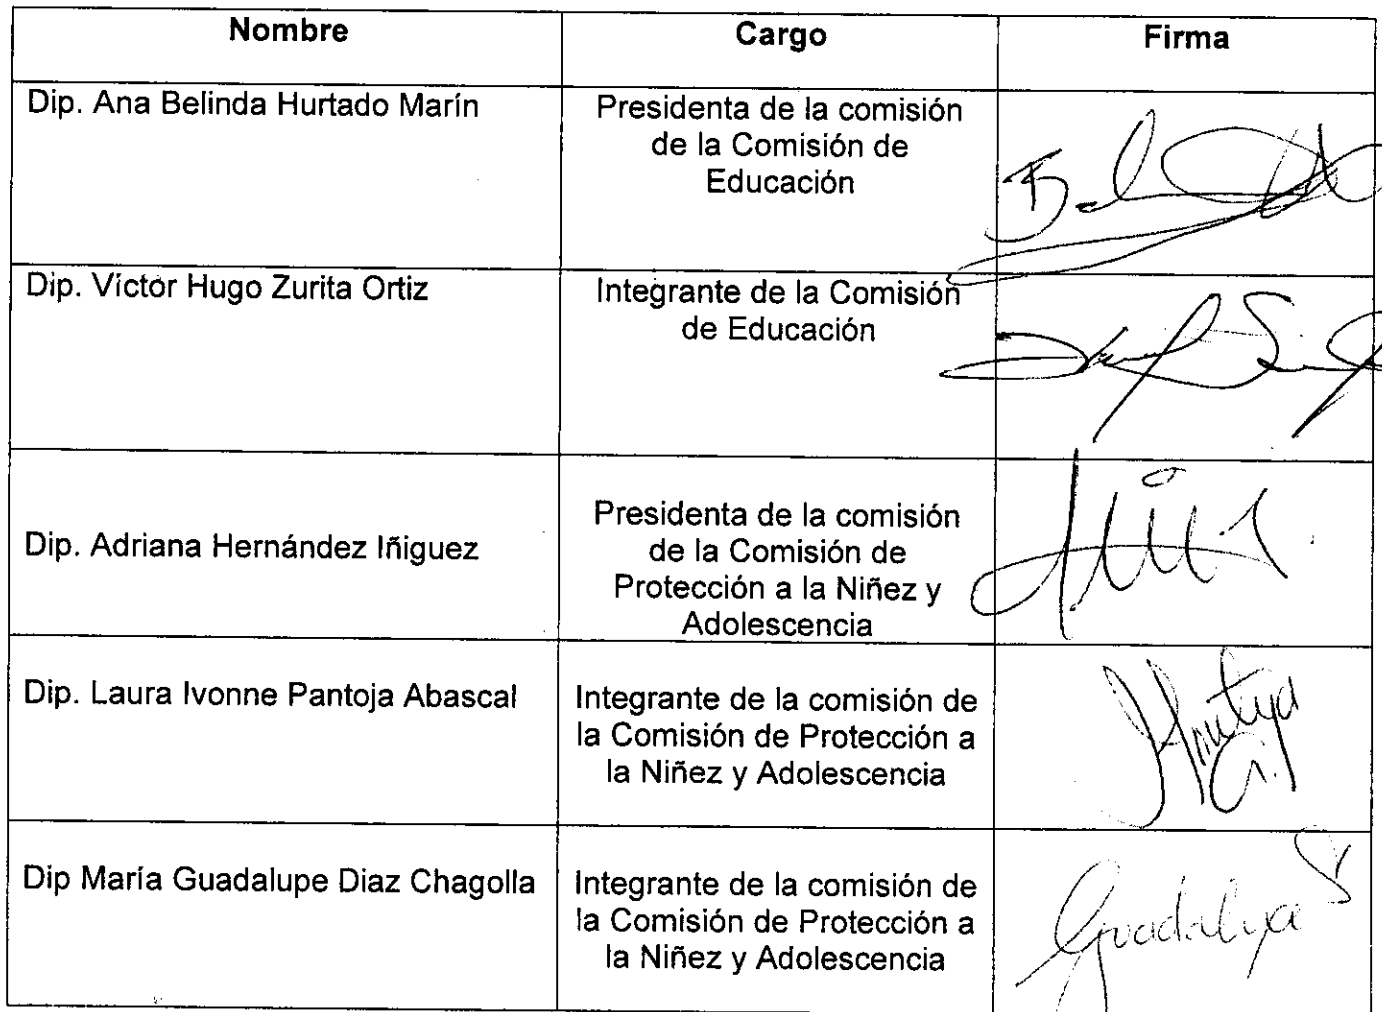 Nombre
Cargo
Firma
Dip. Ana Belinda Hurtado Marín
Presidenta de la comisión
de la Comisión de
Educación
Dip. Víctor Hugo Zurita Ortiz
Integrante de la Comisión
de Educación
Dip. Adriana Hernández Iñiguez
Presidenta de la comisión
de la Comisión de
Protección a la Niñez y
Adolescencia
Dip. Laura Ivonne Pantoja Abascal
Integrante de la comisión de
la Comisión de Protección a
la Niñez y Adolescencia
Dip María Guadalupe Diaz Chagolla
Integrante de la comisión de
la Comisión de Protección a
la Niñez y Adolescencia